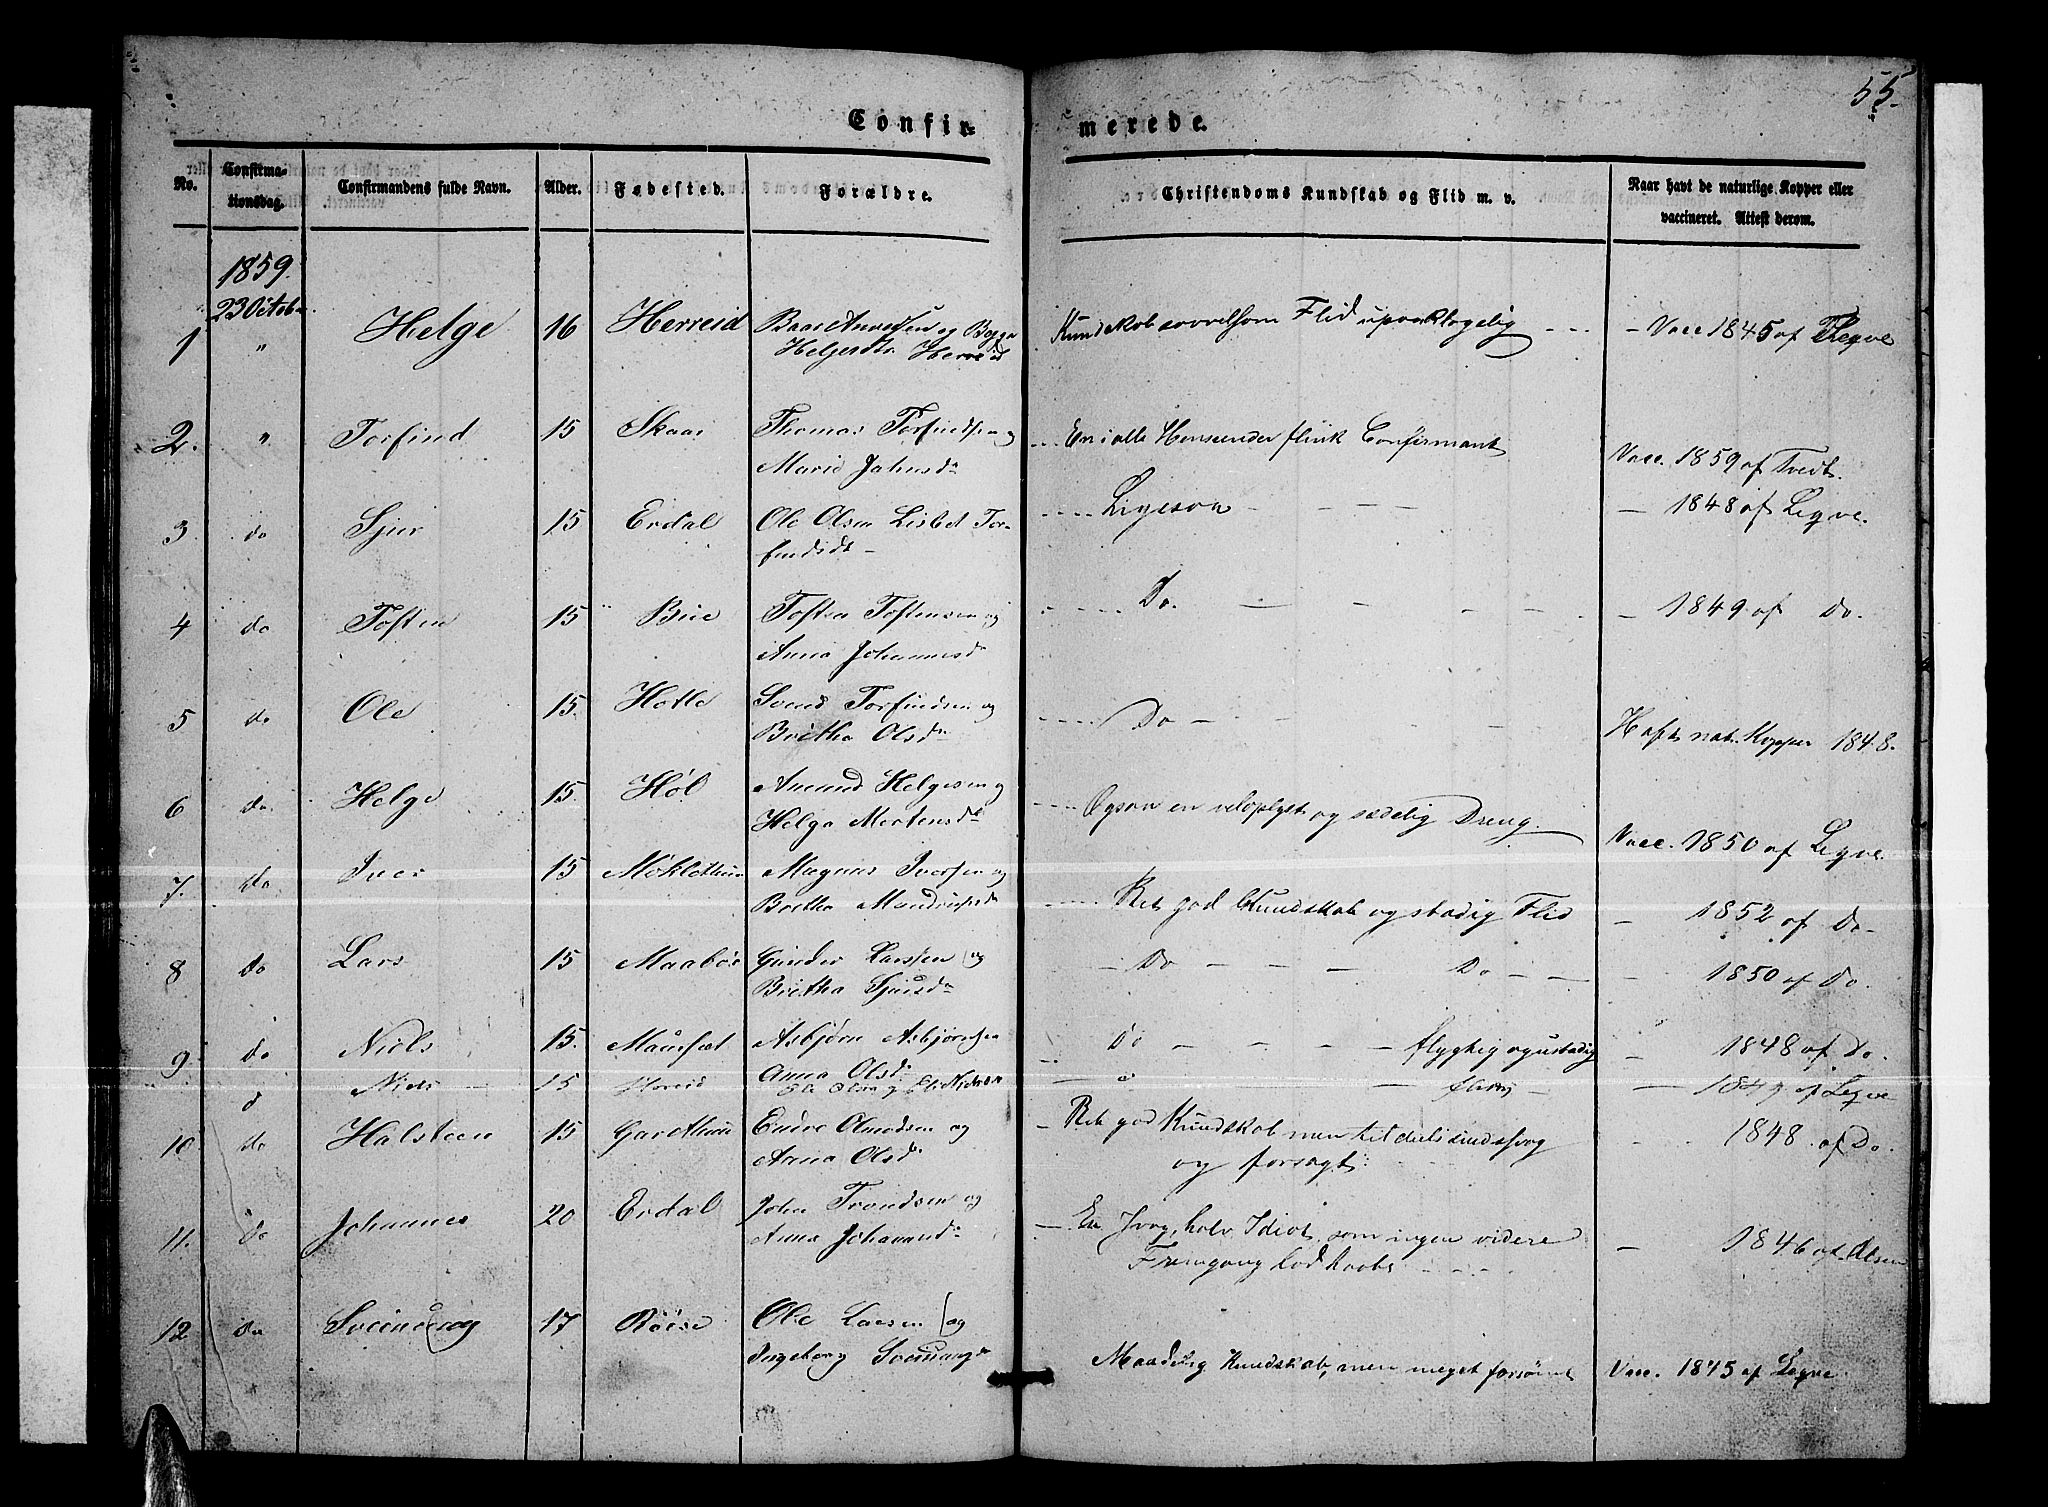 55.
Confir-
merede.
No.
Confirma-
tionsdag.
Confirmandens fulde Navn.
Alder.
Fødested.
Forældre.
Christendoms Kundskab og Flid m. v.
Naar havt de naturlige Kopper eller
vaccineret. Attest derom.
1859.
23 Octob
1 " Helge 16 Herreid og
Helgesdtr Herreid
Kundskab saavelsom Flid upaaklagelig - Vacc 1845 af Legve
2. " Torfind 15 Skaar Thomas Torfindsen og
Marie Johnsdr
En i alle Henseender flink Confirmant
Vacc. 1859 af Tvedt.
3 do Sjur 15 Erdal Ole Olsen Lisbet Tor-
findsdt
Ligesaa - 1848 af Legve.
4 do Tosten 15 Bue Tosten Tostensen og
Anna Johannesdr
Do. - 1849 af Do.
5 do Ole 15. Hotle Svend Torfindsen og
Britha Olsdr
Do Haft nat. Kopper 1848.
6 do Helge 15. Høl Amund Helgesen og
Helga Mortensdr
Ogsaa en veloplyst og sædelig Dreng.
Vacc. 1850 af Legve.
7. do Iver 15 Magnus Iversen og
Britha
Ret god Kundskab og stadig Flid - 1852 af Do
8 do Lars 15 Maabøe Gunder Larssen og
Britha Sjursdr
Do Do 1850 af Do.
9 do Niels 15. Maurset Asbjørn Asbjørnsen
Anna Olsdr
Do flygtig og ustadig - 1848 af Do.
d Niels 15 Hereid Ole Olsen og
af Legve
10. do Halsteen 15 Garethun Endre Olmodsen og
Anna Olsdr
Ret god Kundskab men tildeels sindssvag
og forsagt.
1848 af Do.
11. do Johannes 20 Erdal John Trondsen og
Anna
En svag, halv Idiot, som ingen videre
Fremgang lod haabe
- 1846 af Olsen
12 do Sveinung 17 Røise Ole Larsen og
Ingeborg Sveinungdr
Maadelig Kundskab, men meget forsømt
Vacc. 1845 af Legve.